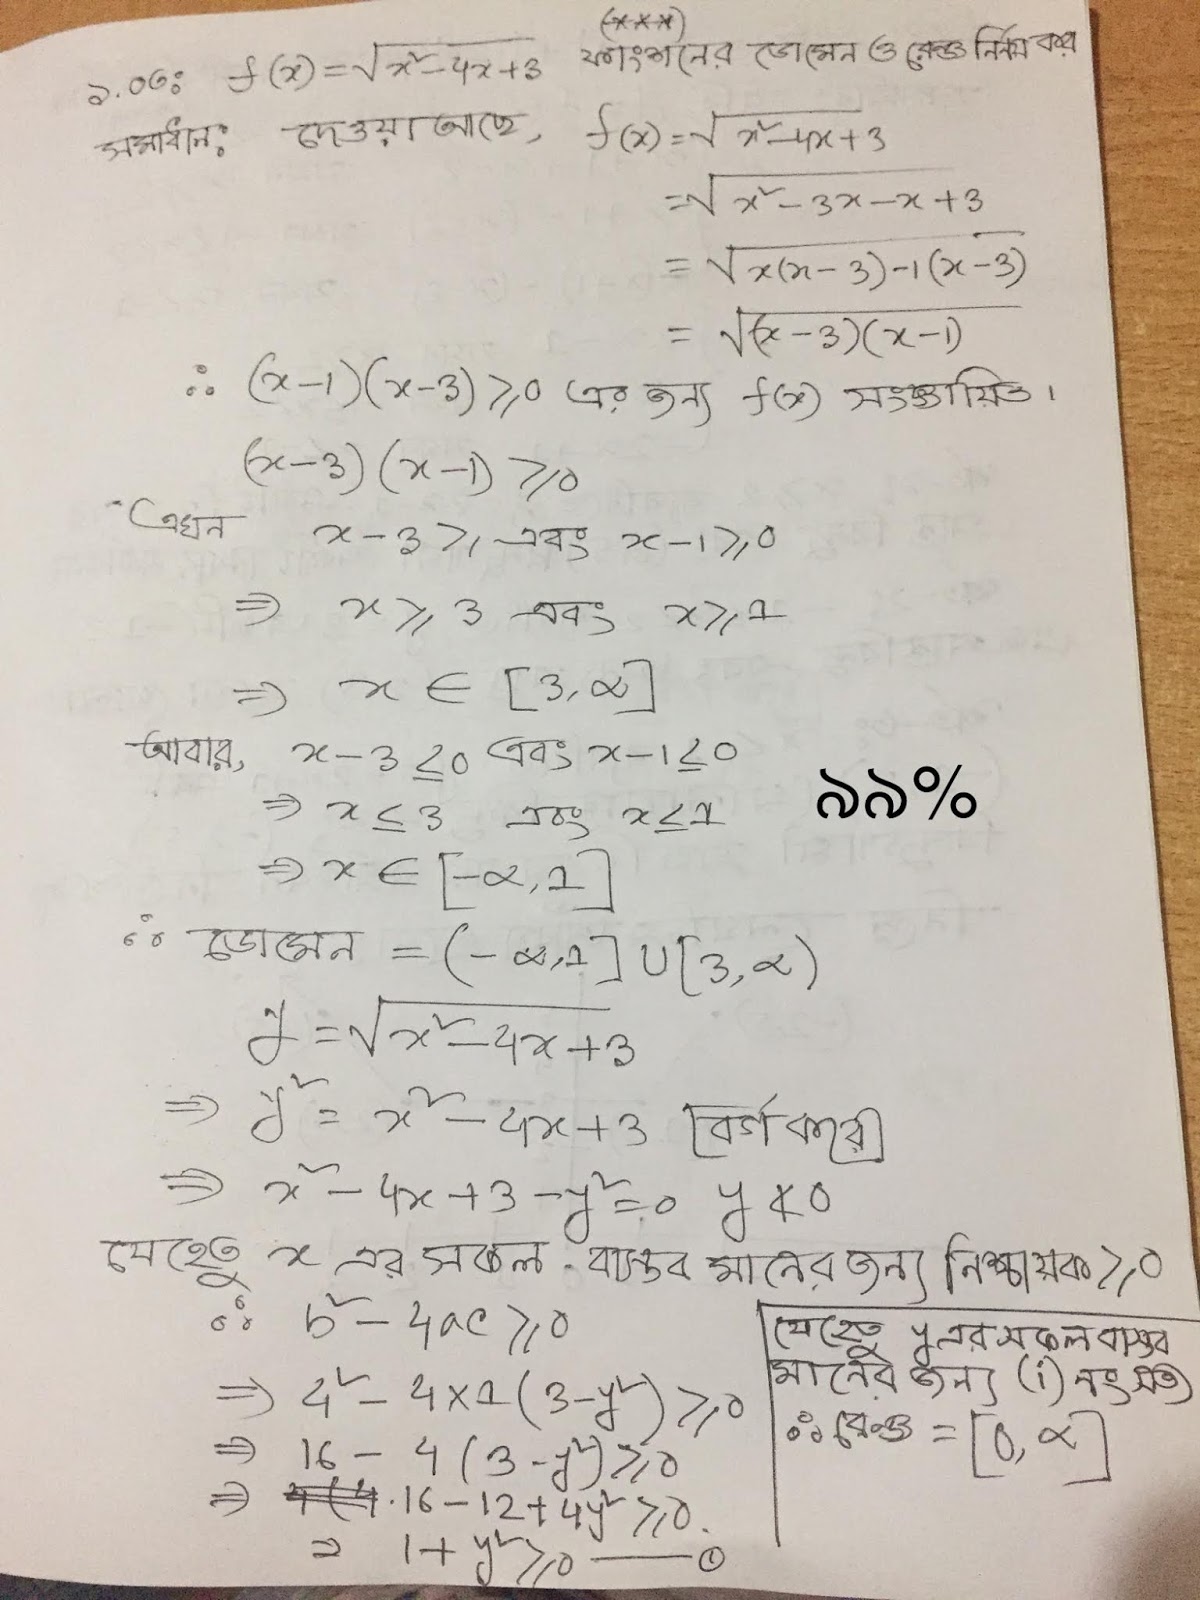 (***)
১.০৩: f(x)=√x²-4x+3 ফাংশনের ডোমেন ও রেন্জ নির্নয় কর
সমাধান: দেওয়া আছে, f(x)=√x²-4x+3
=√x²-3x-x+3
=√x(x-3)-1(x-3)
=√(x-3)(x-1)
∴ (x-1)(x-3)≥0 এর জন্য f(x) সংজ্ঞায়িত।
(x-3)(x-1)≥0
এখন x-3≥ এবং x-1≥0
⇒ x≥3 এবং x≥1
⇒ x∈[3,α]
আবার, x-3≤0 এবং x-1≤0
৯৯%
⇒ x≤3 এবং x≤1
⇒ x∈[-α,1]
∴ ডোমেন =(-α,1]∪[3,α)
y=√x²-4x+3
⇒ y²= x²-4x+3 [বর্গ করে]
⇒ x²-4x+3-y²=0 y≮0
যেহেতু x এর সকল বাস্তব মানের জন্য নিশ্চায়ক≥0
∴ b²-4ac≥0
⇒ 4²-4×1(3-y²)≥0
⇒ 16-4(3-y²)≥0
⇒ 16-12+4y²≥0
⇒ 1+y²≥0 —— ①
যেহেতু y এর সকল বাস্তব
মানের জন্য (i) নং সত্য
∴ রেন্জ =[0,α]